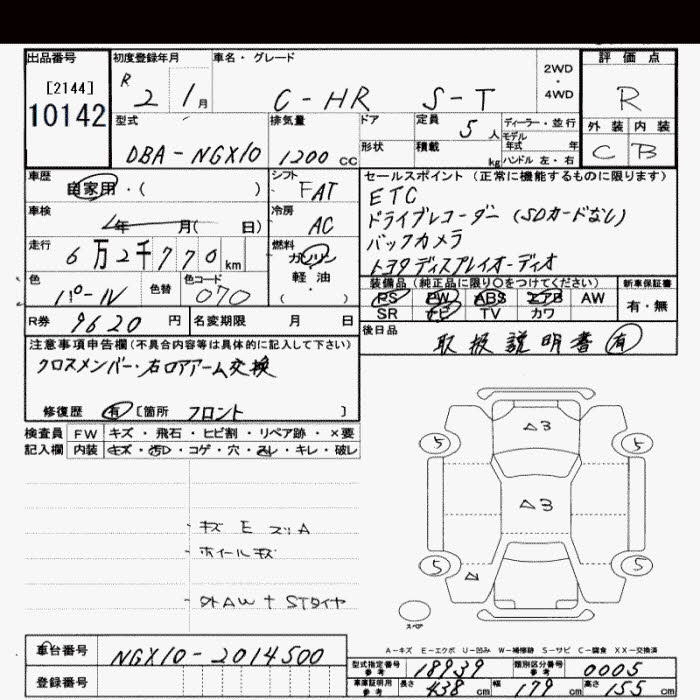 出品番号
[2144]
10142
初度登録年月
R 2 1月
車名・グレード
C-HR S-T
2WD
・
4WD
評価点
R
外装 内装
C B
型式
DBA-NGX10
排気量
1200 cc
ドア
形状
定員 5 人
積載 kg
ディーラー・並行
モデル年式 年
ハンドル 左・右
車歴
自家用・( )
シフト
FAT
車検
年 月( 日)
冷房
AC
走行
6万2千770km
燃料
ガソリン
軽・油
( )
色
パール
色替
色コード
070
R券 9620円
名変期限 月 日
セールスポイント (正常に機能するものに限ります)
ETC
ドライブレコーダー (SDカードなし)
バックカメラ
トヨタディスプレイオーディオ
装備品 (純正品に限り〇をつけてください)
PS PW ABS エアB AW
SR ナビ TV カワ
新車保証書
有・無
後日品
取扱説明書 有
注意事項申告欄(不具合内容等は具体的に記入して下さい)
クロスメンバー・右ロアアーム交換
修復歴 有 [箇所 フロント ]
検査員 FW キズ・飛石・ヒビ割・リペア跡・×要
記入欄 内装 キズ・汚れ・コゲ・穴・スレ・キレ・破レ
- キズ E スリA
- ホイールキズ
- 外AW + STタイヤ
△3
5 5
△3
5 5
スペア
A-キズ E-エクボ U-凹み W-補修跡 S-サビ C-腐食 XX-交換済
車台番号
NGX10-2014500
登録番号
型式指定番号 参考 18939
類別区分番号 参考 0005
車庫証明用 参考 長さ 438 cm 幅 179 cm 高さ 155 cm